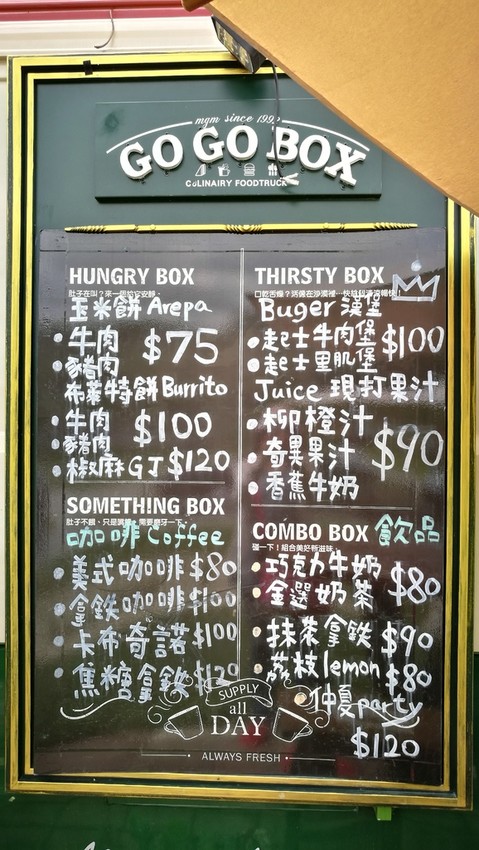 mgm since 1995
GO GO BOX
CULINAIRY FOODTRUCK
HUNGRY BOX
玉米餅 Arepa
牛肉
豬肉
$75
布萊特餅 Burrito
牛肉
豬肉
$100
椒麻GJ $120
SOMETHING BOX
咖啡 Coffee
美式咖啡 $80
拿鐵咖啡 $100
卡布奇諾 $100
焦糖拿鐵 $120
THIRSTY BOX
Buger 漢堡
起士牛肉堡
起士里肌堡
$100
Juice 現打果汁
柳橙汁
奇異果汁
香蕉牛奶
$90
COMBO BOX 飲品
碰一下！組合美好新滋味
巧克力牛奶
金選奶茶
$80
抹茶拿鐵 $90
荔枝lemon $80
仲夏party
$120
SUPPLY
all
DAY
ALWAYS FRESH